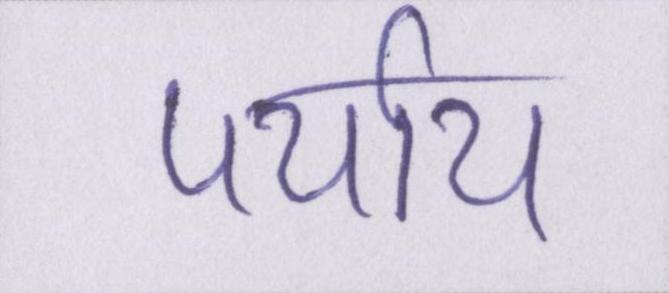 पर्याय